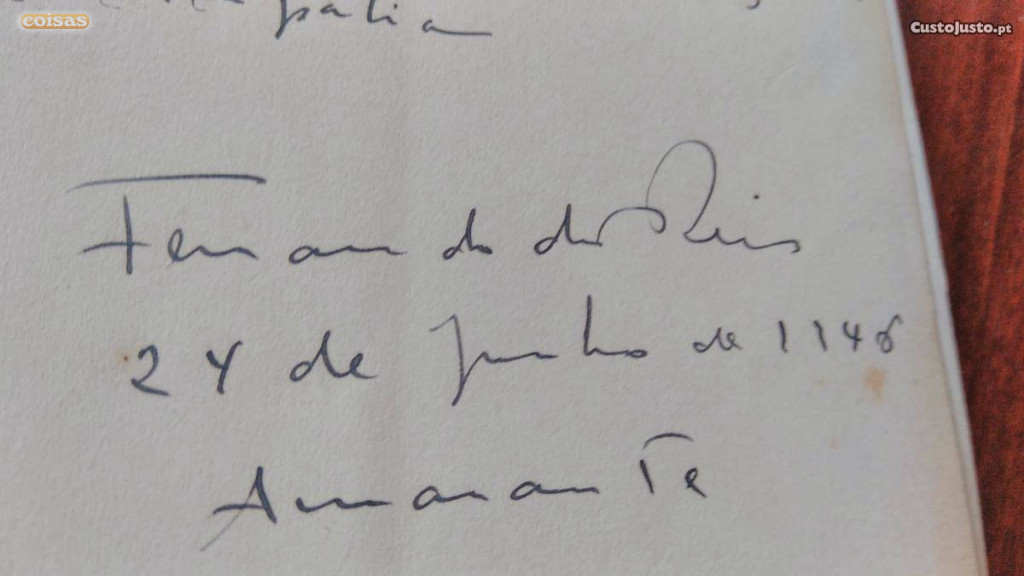 coisas
CustoJusto.pt
Fernando dos Reis
24 de Junho de 1146
Amarante